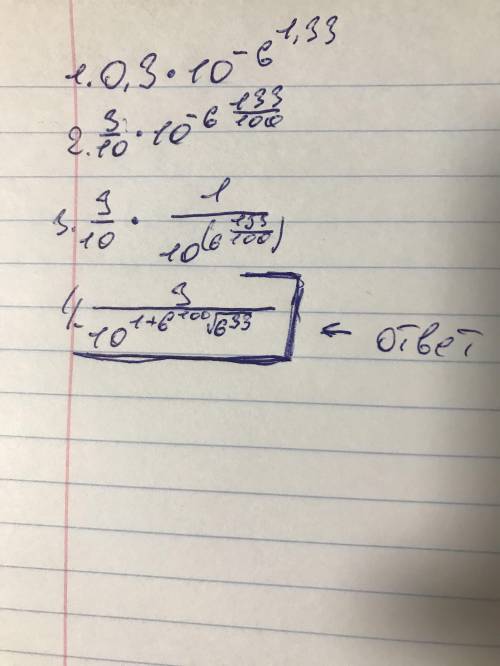 1. 0,3 · 10^{-6^{1,33}}
2. \frac{3}{10} · 10^{-6^{\frac{133}{100}}}
3. \frac{3}{10} · \frac{1}{10^{(6^{\frac{133}{100}})}}
4. \frac{3}{10^{1+6\sqrt[100]{6^{33}}}} ← ответ